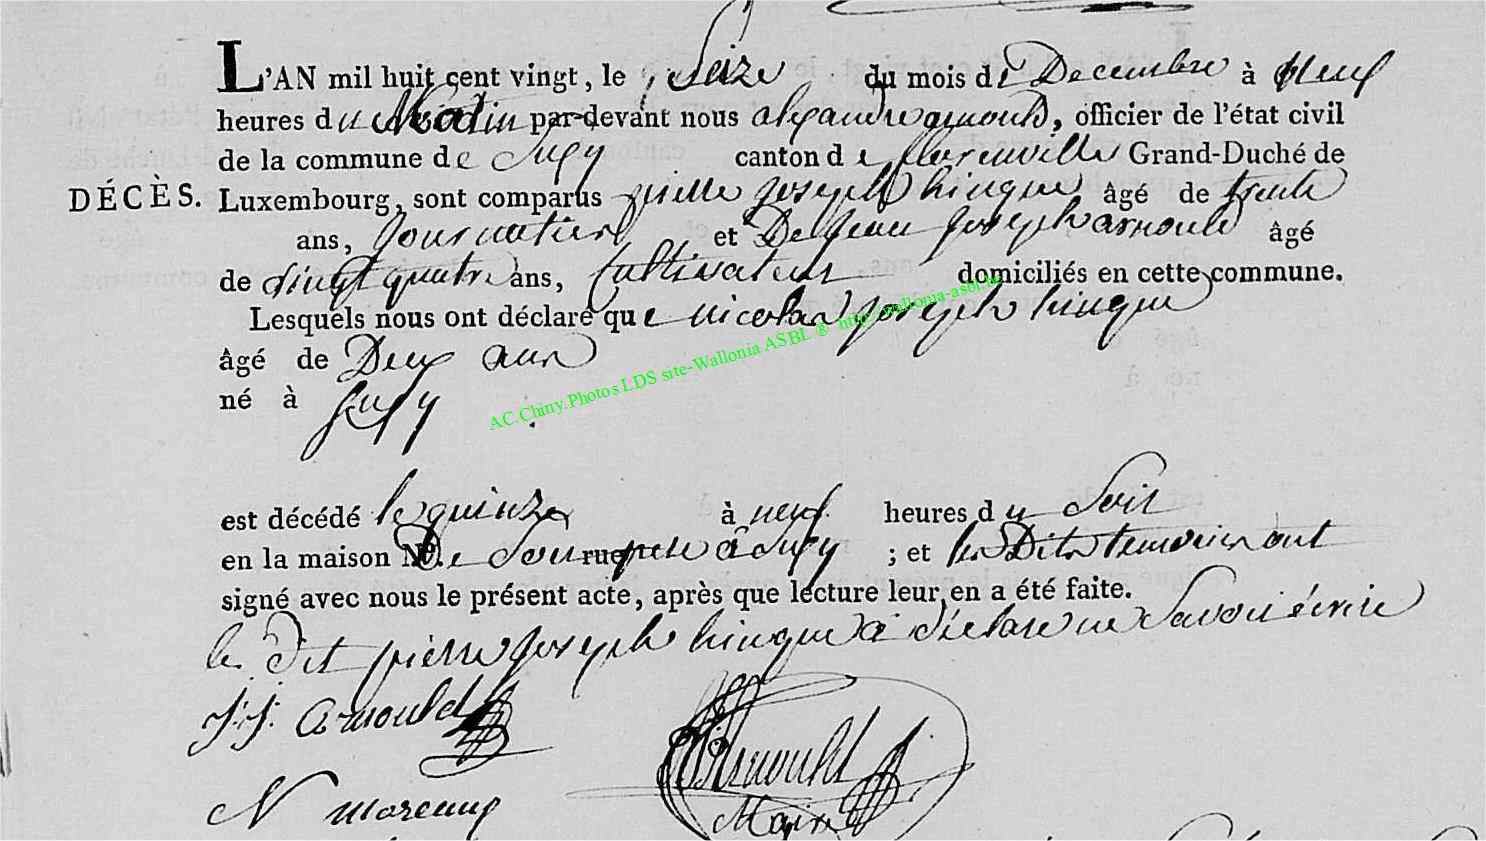 L'AN mil huit cent vingt, le Seize du mois de Decembre à Neuf
heures du Matin par-devant nous alexandre arnould, officier de l'état civil
de la commune de Suxy canton de florenville Grand-Duché de
DÉCÈS. Luxembourg, sont comparus pierre joseph hinque âgé de trente
ans, Journatier et De jean joseph arnould âgé
de vingt quatre ans, Cultivateur domiciliés en cette commune.
Lesquels nous ont déclaré que nicolas joseph hinque
âgé de Deux ans
né à Suxy
AC.Chiny.Photos LDS site-Wallonia ASBL @ http://wallonia-asbl.be
est décédé le quinze à neuf heures du Soir
en la maison N°. De Son rue pere à Suxy ; et les Dits temoins ont
signé avec nous le présent acte, après que lecture leur en a été faite.
le dit pierre joseph hinque à déclaré ne Savoir écrire
J.J. Arnould
Arnould
N marcung
Maire